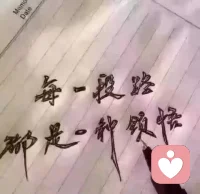 Date
每一段路
都是一种领悟